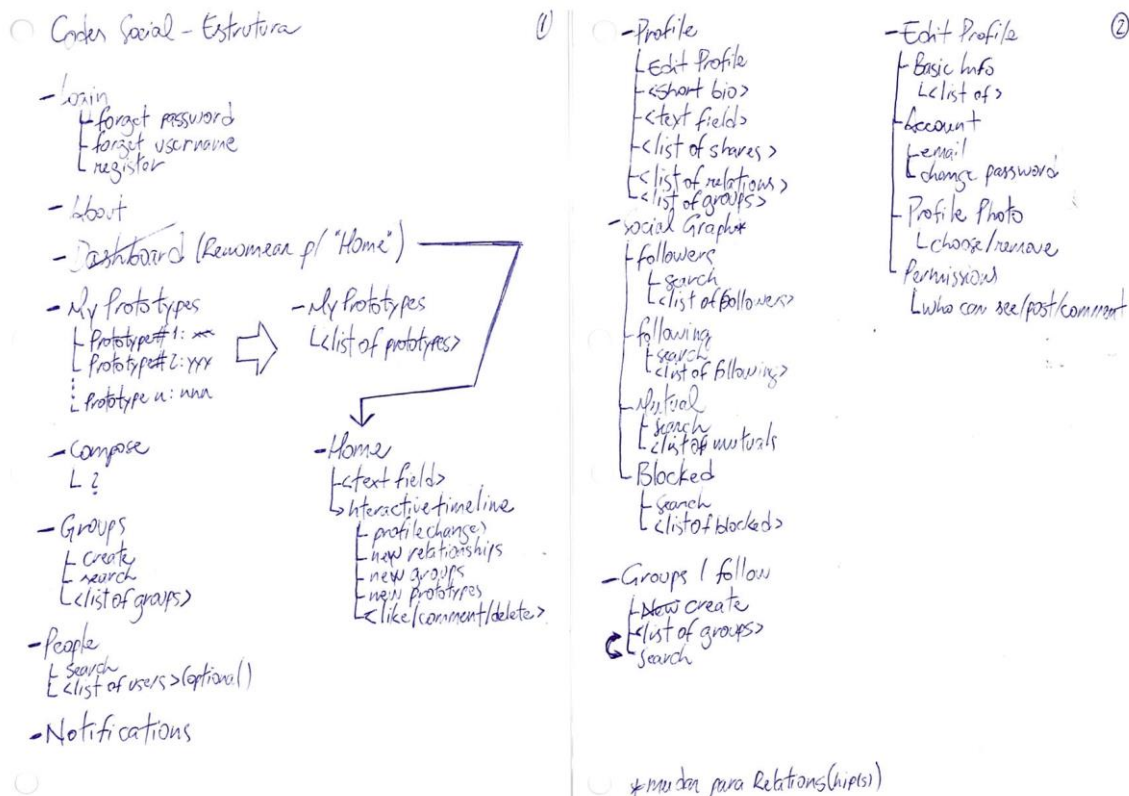 Codes Social - Estrutura
①
- Login
forget password
forget username
register
- About
- Dashboard (Renomear p/ "Home")
- My Prototypes
Prototype#1: xxx
Prototype#2: yyy
Prototype n: nnn
- My Prototypes
<list of prototypes>
- Compose
?
- Home
<text field>
Interactive timeline
profile changes
new relationships
new groups
new prototypes
<like/comment/delete>
- Groups
create
search
<list of groups>
- People
search
<list of users> (optional)
- Notifications
②
- Profile
Edit Profile
<short bio>
<text field>
<list of shares>
<list of relations>
<list of groups>
- Social Graph*
followers
search
<list of followers>
following
search
<list of following>
Mutual
search
<list of mutuals
Blocked
search
<list of blocked>
- Groups I follow
New create
<list of groups>
search
*mudar para Relations(hip(s))
- Edit Profile
Basic Info
<list of>
Account
email
change password
Profile Photo
choose/remove
Permissions
who can see/post/comment